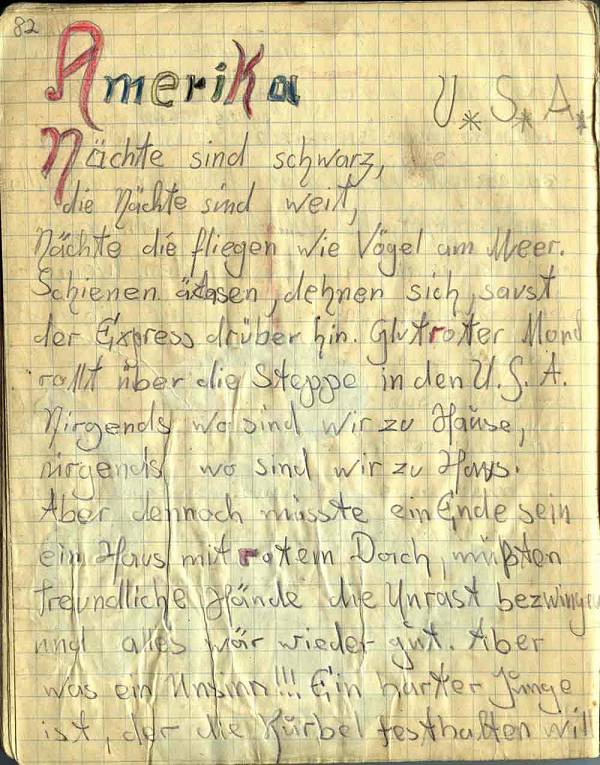 82
Amerika
U.*S.*A.*
Nächte sind schwarz,
die Nächte sind weit,
Nächte die fliegen wie Vögel am Meer.
Schienen ächsen, dehnen sich, saust
der Express drüber hin. Glutroter Mond
rollt über die Steppe in den U.S.A.
Nirgends wo sind wir zu Hause,
nirgends wo sind wir zu Haus.
Aber dennoch müsste ein Ende sein
ein Haus mit rotem Dach, müßten
freundliche Hände die Unrast bezwingen
und alles wär wieder gut. Aber
was ein Unsinn!!! Ein harter Junge
ist, der die Kurbel festhalten will